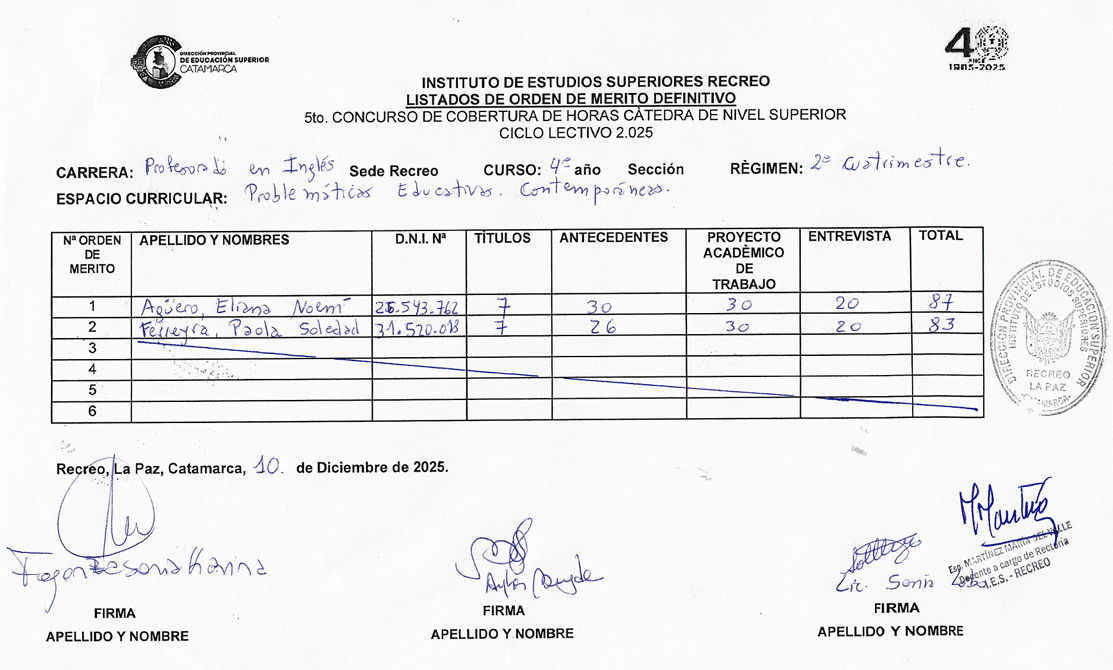 DIRECCIÓN PROVINCIAL
DE EDUCACIÓN SUPERIOR
CATAMARCA
40
AÑOS
1985-2025
INSTITUTO DE ESTUDIOS SUPERIORES RECREO
LISTADOS DE ORDEN DE MERITO DEFINITIVO
5to. CONCURSO DE COBERTURA DE HORAS CÀTEDRA DE NIVEL SUPERIOR
CICLO LECTIVO 2.025
CARRERA: Profesorado en Inglés Sede Recreo CURSO: 4º año Sección RÈGIMEN: 2º Cuatrimestre.
ESPACIO CURRICULAR: Problemáticas Educativas. Contemporáneas.
Nª ORDEN DE MERITO APELLIDO Y NOMBRES D.N.I. Nª TÌTULOS ANTECEDENTES PROYECTO ACADÈMICO DE TRABAJO ENTREVISTA TOTAL
1 Agüero, Eliana Noemí 7 30 30 20 87
2 Ferreyra, Paola Soledad 31.520.018 7 26 30 20 83
3
4
5
6
DIRECCIÓN PROVINCIAL DE EDUCACIÓN SUPERIOR
INSTITUTO DE ESTUDIOS SUPERIORES
RECREO
LA PAZ
-CATAMARCA-
Recreo, La Paz, Catamarca, 10. de Diciembre de 2025.
Esp. MARTÍNEZ MARIA DEL VALLE
Docente a cargo de Rectoría
I.E.S. - RECREO
Lic. Sonia
FIRMA FIRMA FIRMA
APELLIDO Y NOMBRE APELLIDO Y NOMBRE APELLIDO Y NOMBRE